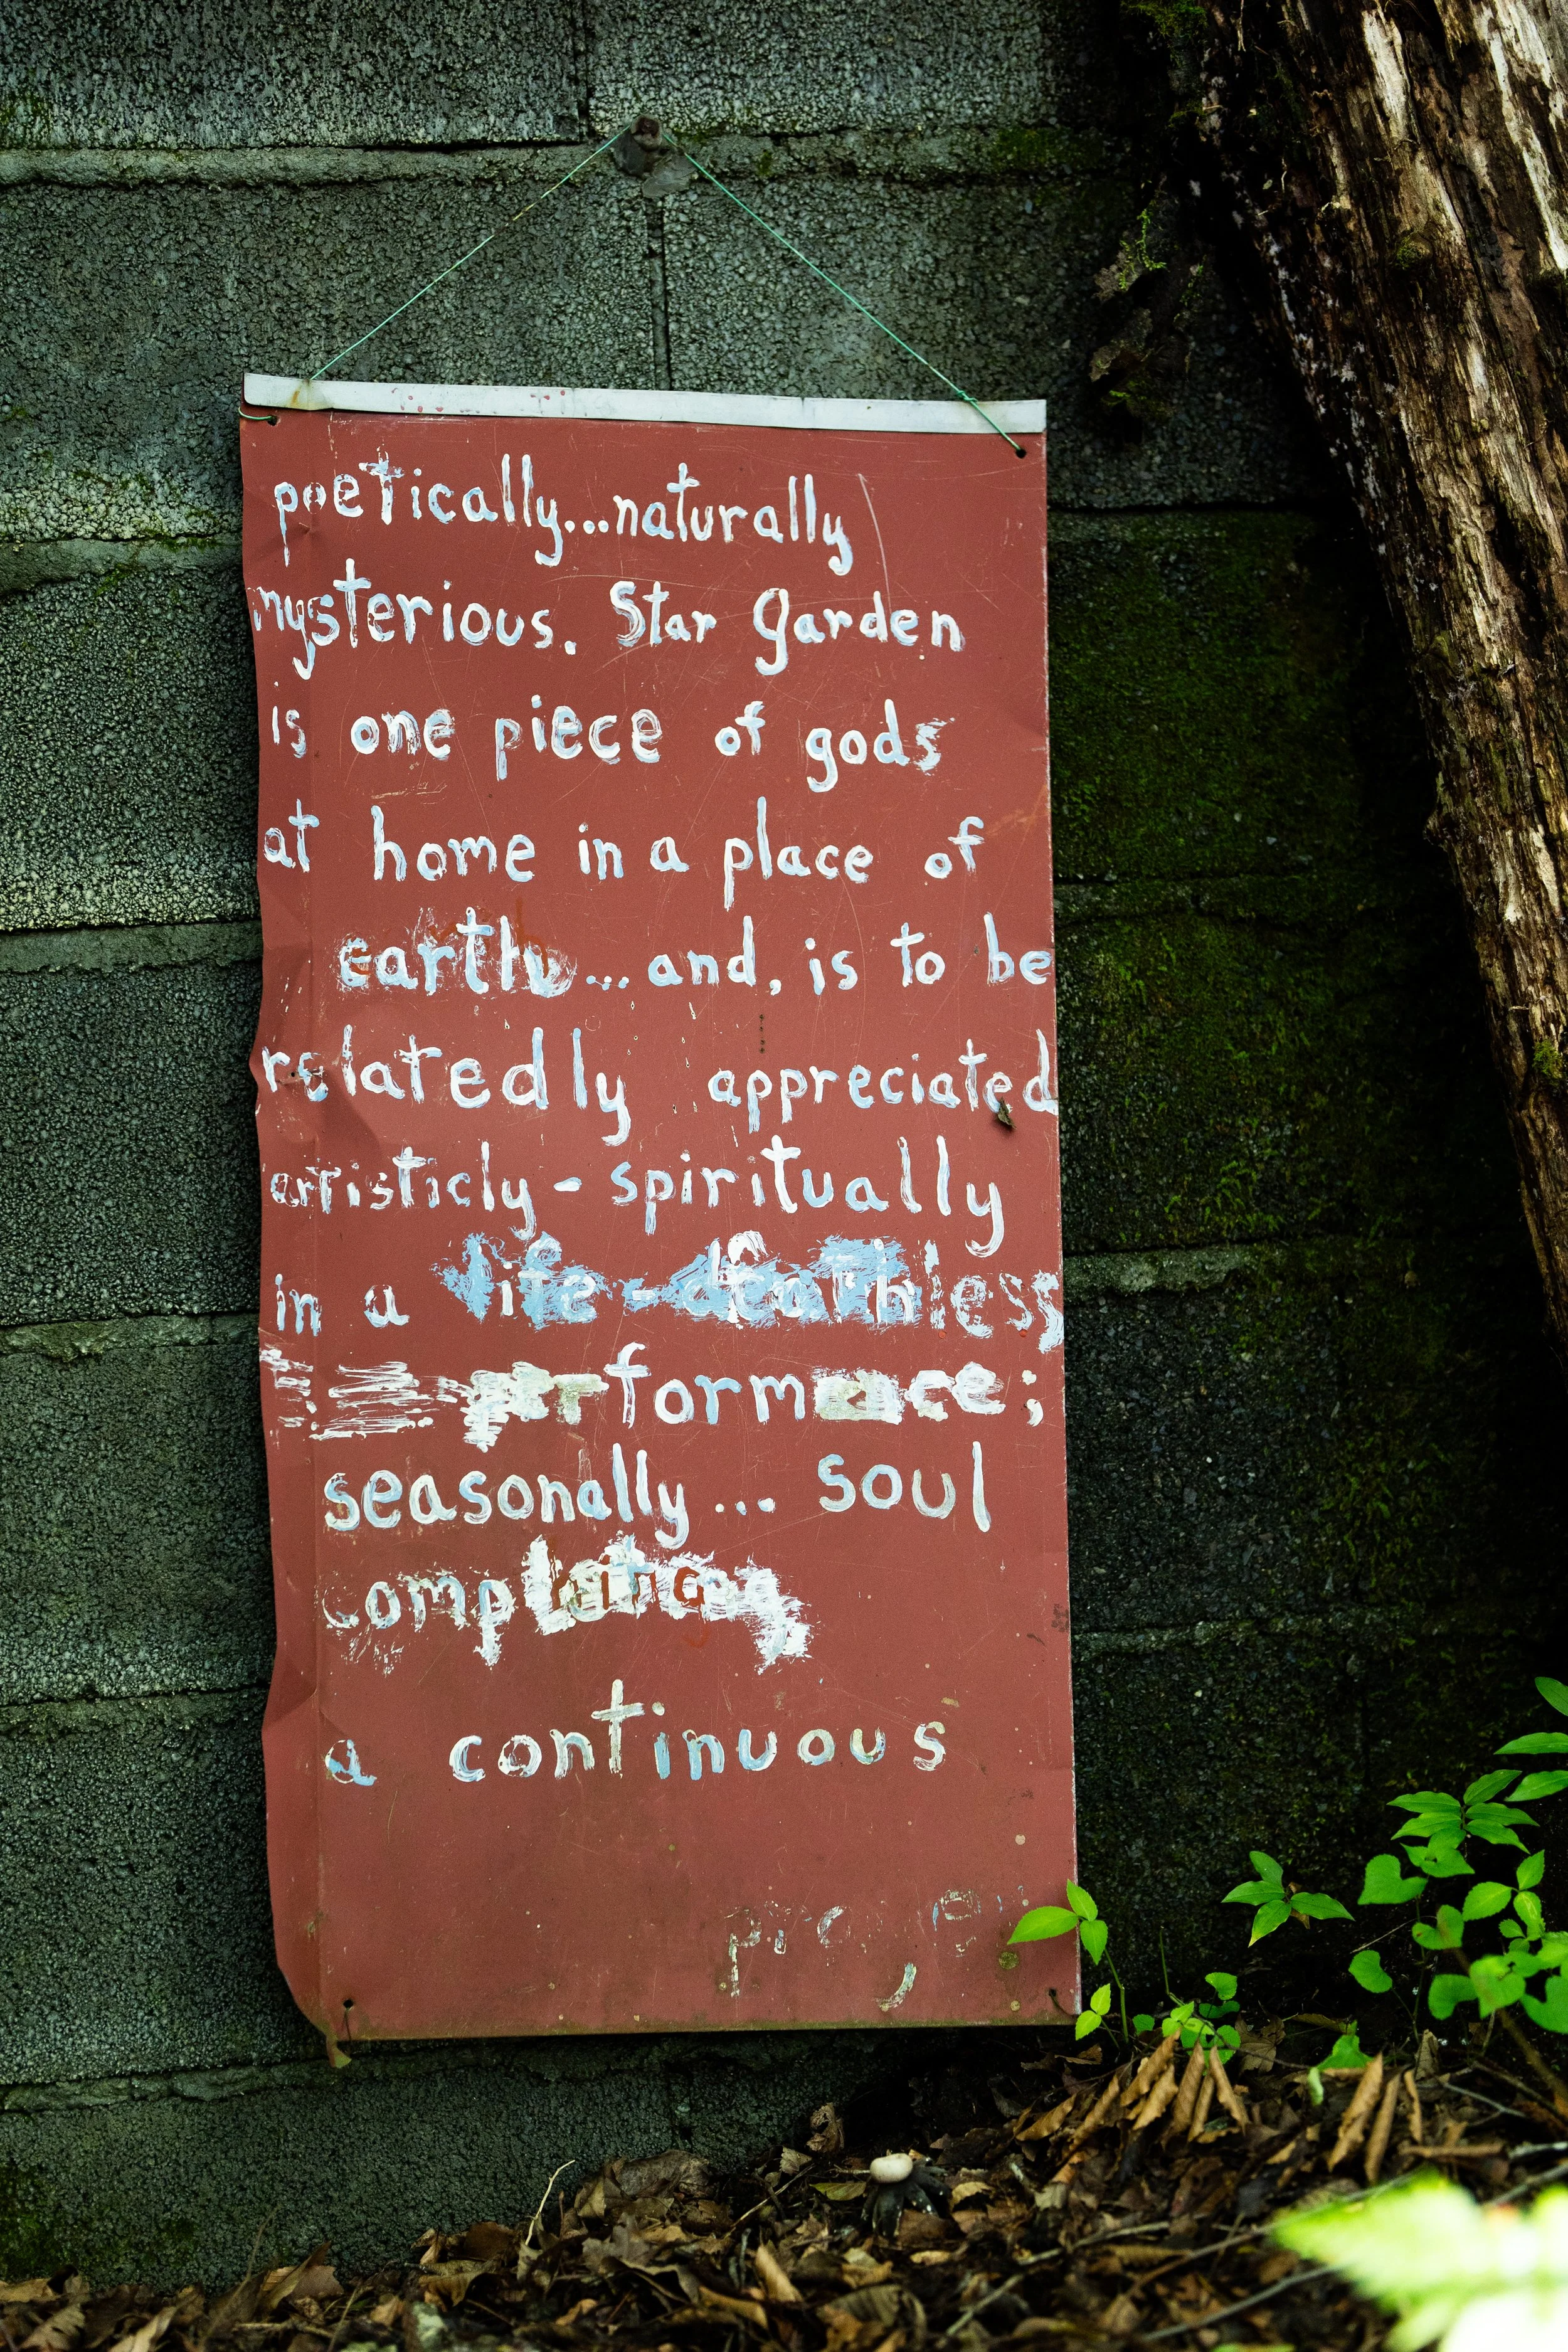 poetically...naturally
mysterious. Star Garden
is one piece of gods
at home in a place of
earth... and, is to be
relatedly appreciated
artisticly - spiritually
in a life - deathless
performance;
seasonally... soul
a continuous